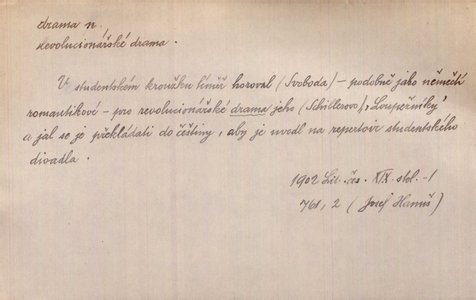 drama n.
revolucionářské drama.
V studentském kroužku téměř horoval (Svoboda) – podobně jako němečtí
romantikové – pro revolucionářské drama jeho (Schillerovo) „Loupežníky"
a jal se je překládati do češtiny, aby je uvedl na repertoir studentského
divadla.
1902 Lit. čes. XIX stol. -1
761, 2 (Josef Hanuš)